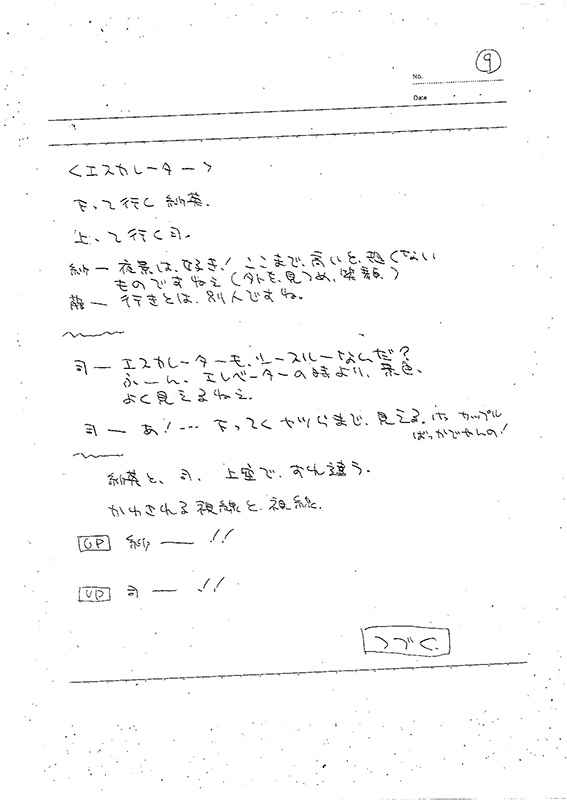 9
No.
Date
<エスカレーター>
下って行く 紗英.
上って行く司.
紗ー 夜景は、好き! ここまで、高いと、恐くない
ものですねぇ(外を、見つめ、笑顔)
藤ー 行きとは、別人ですね.
司ー エスカレーターも、シースルーなんだ?
ふーん、エレベーターの時より、景色、
よく見えるねぇ.
司ー あ!… 下ってく ヤツらまで、見える. カップル
ばっかでやんの!
紗英と、司、上空で、すれ違う.
かわされる視線と、視線.
UP 紗 ー !!
UP 司 ー !!
つづく.